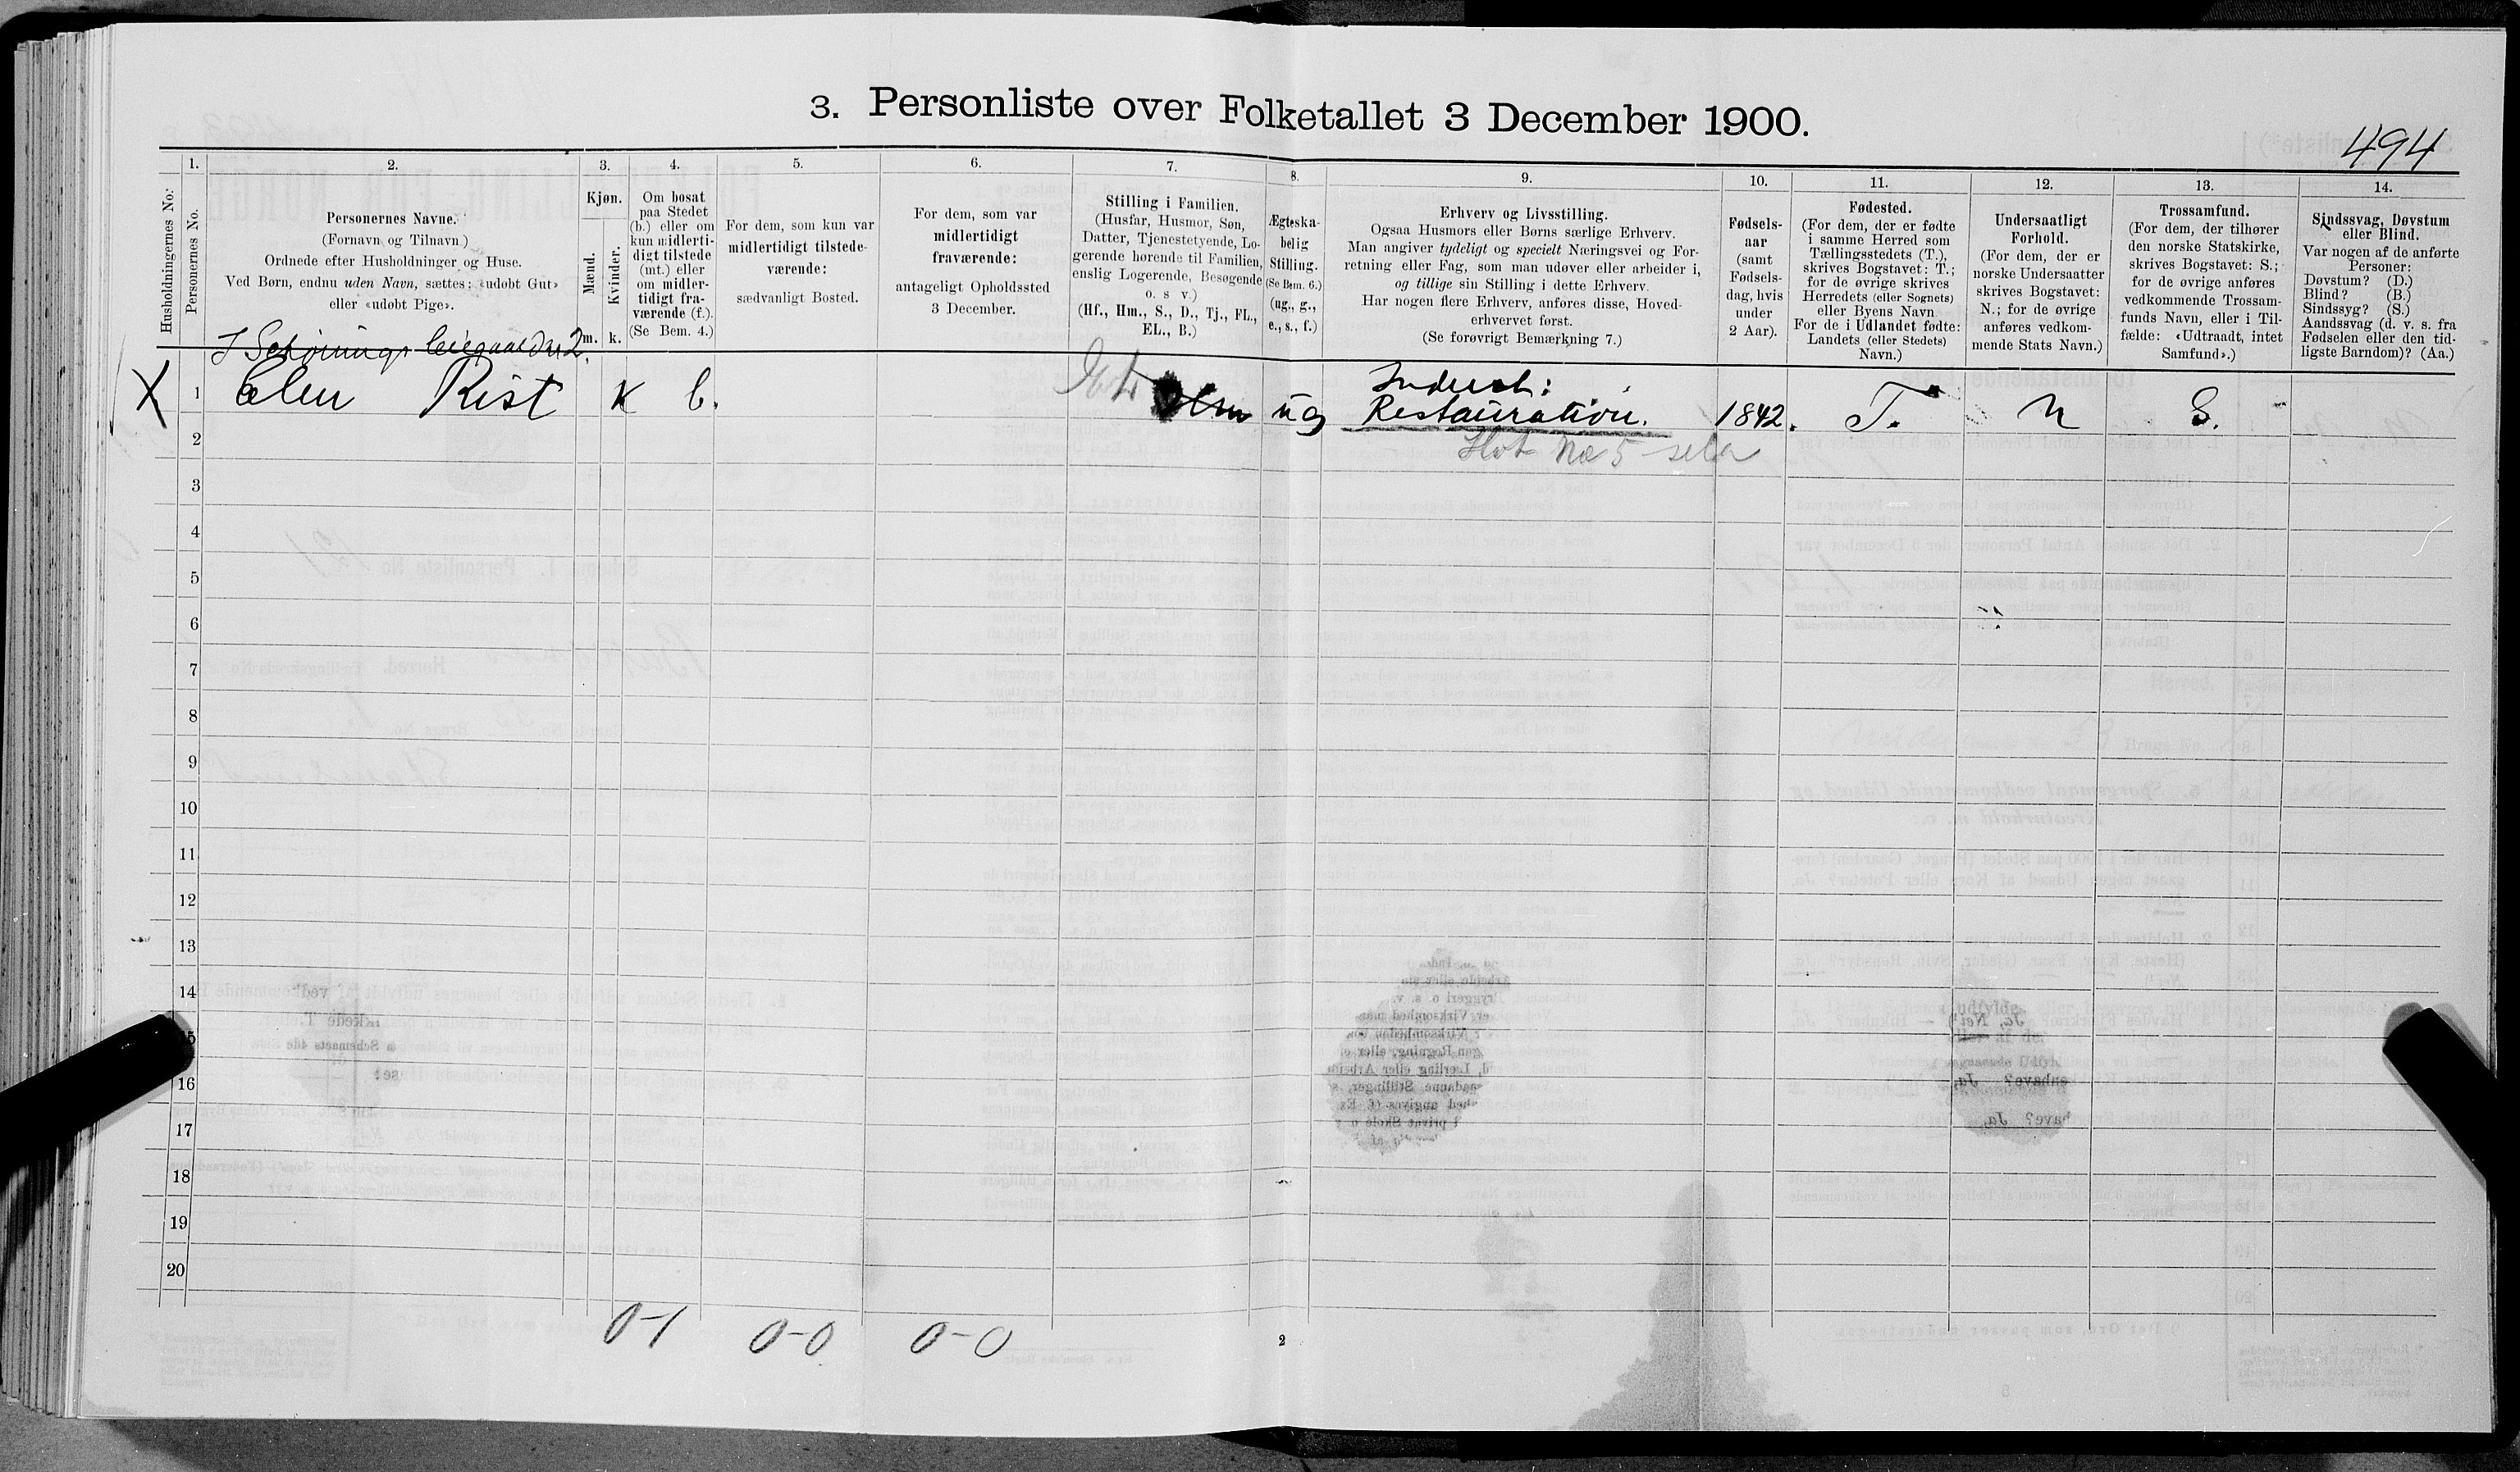 3. Personliste over Folketallet 3 December 1900.
494
Husholdningernes No.
1.
Personernes No.
2.
Personernes Navne.
(Fornavn og Tilnavn.)
Ordnede efter Husholdninger og Huse.
Ved Børn, endnu uden Navn, sættes: «udøbt Gut»
eller «udøbt Pige».
3.
Kjøn.
Mænd.
Kvinder.
m.
k.
4.
Om bosat
paa Stedet
(b.) eller om
kun midlerti-
digt tilstede
(mt.) eller
om midler-
tidigt fra-
værende (f.).
(Se Bem. 4.)
5.
For dem, som kun var
midlertidigt tilstede-
værende:
sædvanligt Bosted.
6.
For dem, som var
midlertidigt
fraværende:
antageligt Opholdssted
3 December.
7.
Stilling i Familien.
(Husfar, Husmor, Søn,
Datter, Tjenestetyende, Lo-
gerende hørende til Familien,
enslig Logerende, Besøgende
o. s v.)
(Hf., Hm., S., D., Tj., FL.,
EL., B.)
8.
Ægteska-
belig
Stilling.
(Se Bem. 6.)
(ug., g.,
e., s., f.)
9.
Erhverv og Livsstilling.
Ogsaa Husmors eller Børns særlige Erhverv.
Man angiver tydeligt og specielt Næringsvei og For-
retning eller Fag, som man udøver eller arbeider i,
og tillige sin Stilling i dette Erhverv.
Har nogen flere Erhverv, anføres disse, Hoved-
erhvervet først.
(Se forøvrigt Bemærkning 7.)
10.
Fødsels-
aar
(samt
Fødsels-
dag, hvis
under
2 Aar).
11.
Fødested.
(For dem, der er fødte
i samme Herred som
Tællingsstedets (T.),
skrives Bogstavet: T.;
for de øvrige skrives
Herredets (eller Sognets)
eller Byens Navn
For de i Udlandet fødte:
Landets (eller Stedets)
Navn.)
12.
Undersaatligt
Forhold.
(For dem, der er
norske Undersaatter
skrives Bogstavet:
N.; for de øvrige
anføres vedkom-
mende Stats Navn.)
13.
Trossamfund.
(For dem, der tilhører
den norske Statskirke,
skrives Bogstavet: S.;
for de øvrige anføres
vedkommende Trossam-
funds Navn, eller i Til-
fælde: «Udtraadt, intet
Samfund».)
14.
Sindssvag, Døvstum
eller Blind.
Var nogen af de anførte
Personer:
Døvstum? (D.)
Blind? (B.)
Sindssyg? (S.)
Aandssvag (d. v. s. fra
Fødselen eller den tid-
ligste Barndom)? (Aa.)
I Schønings leiegaard 2.
X 1 Elen Rist K b. ug Industri: Restauration. 1842. T. N S.
2
3
4
5
6
7
8
9
10
11
12
13
14
15
16
17
18
19
20
0-1 0-0 0-0
2